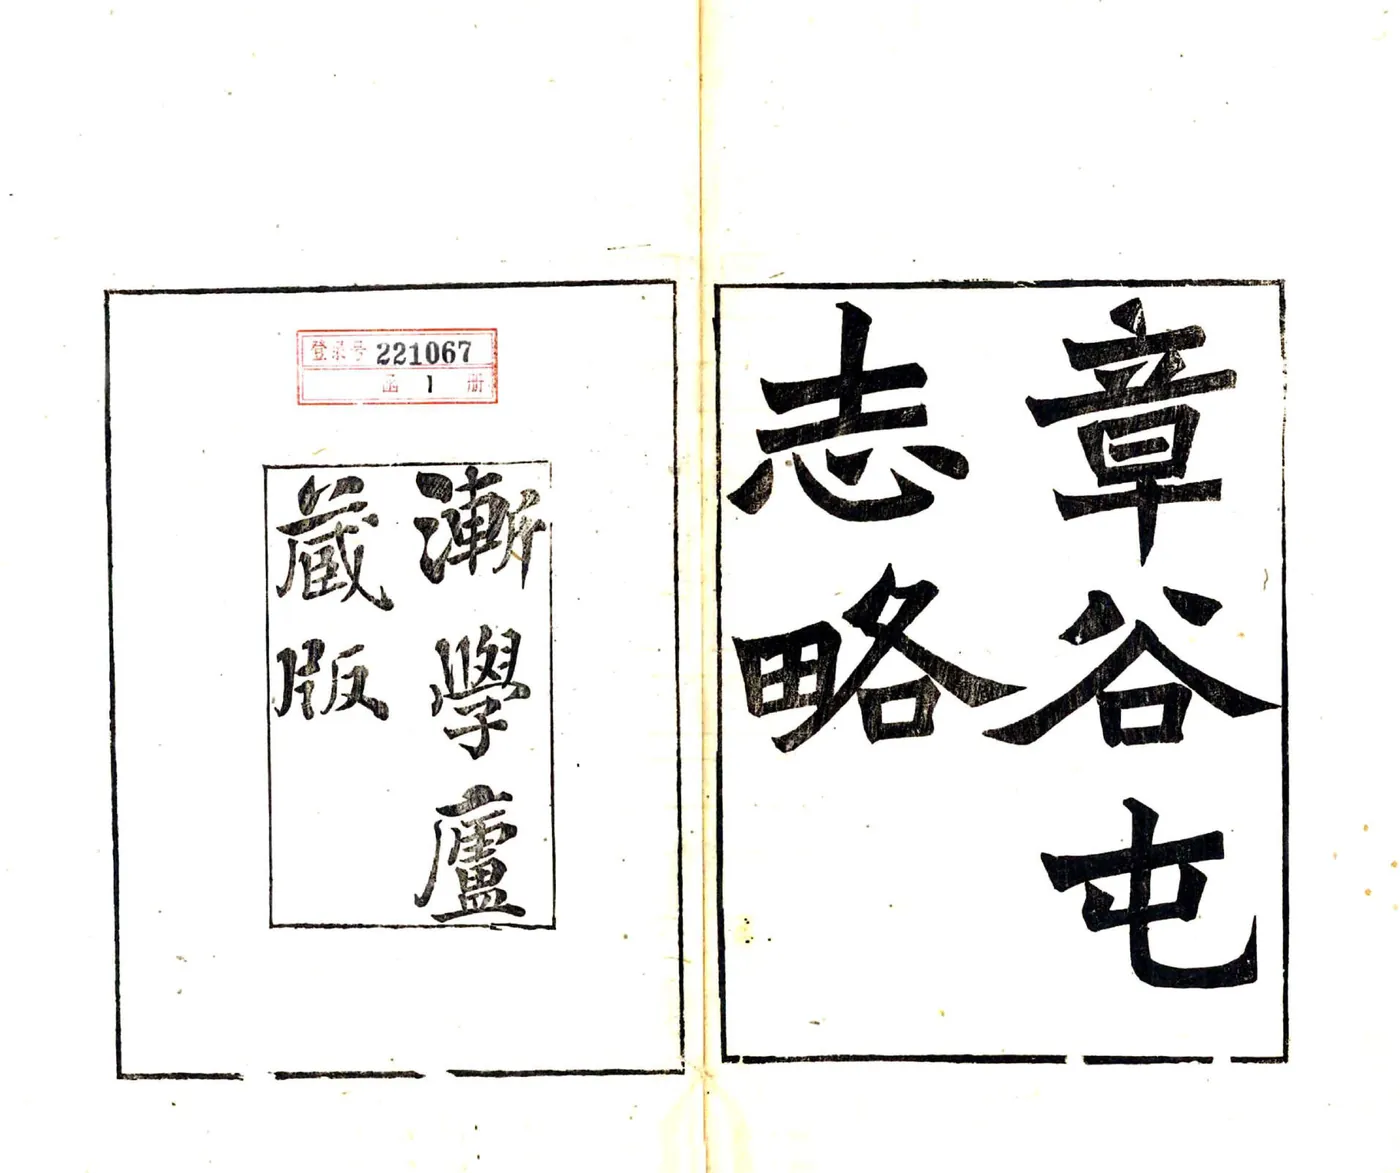 章谷屯
志略
登录号 221067
函 1 册
漸學廬
藏版